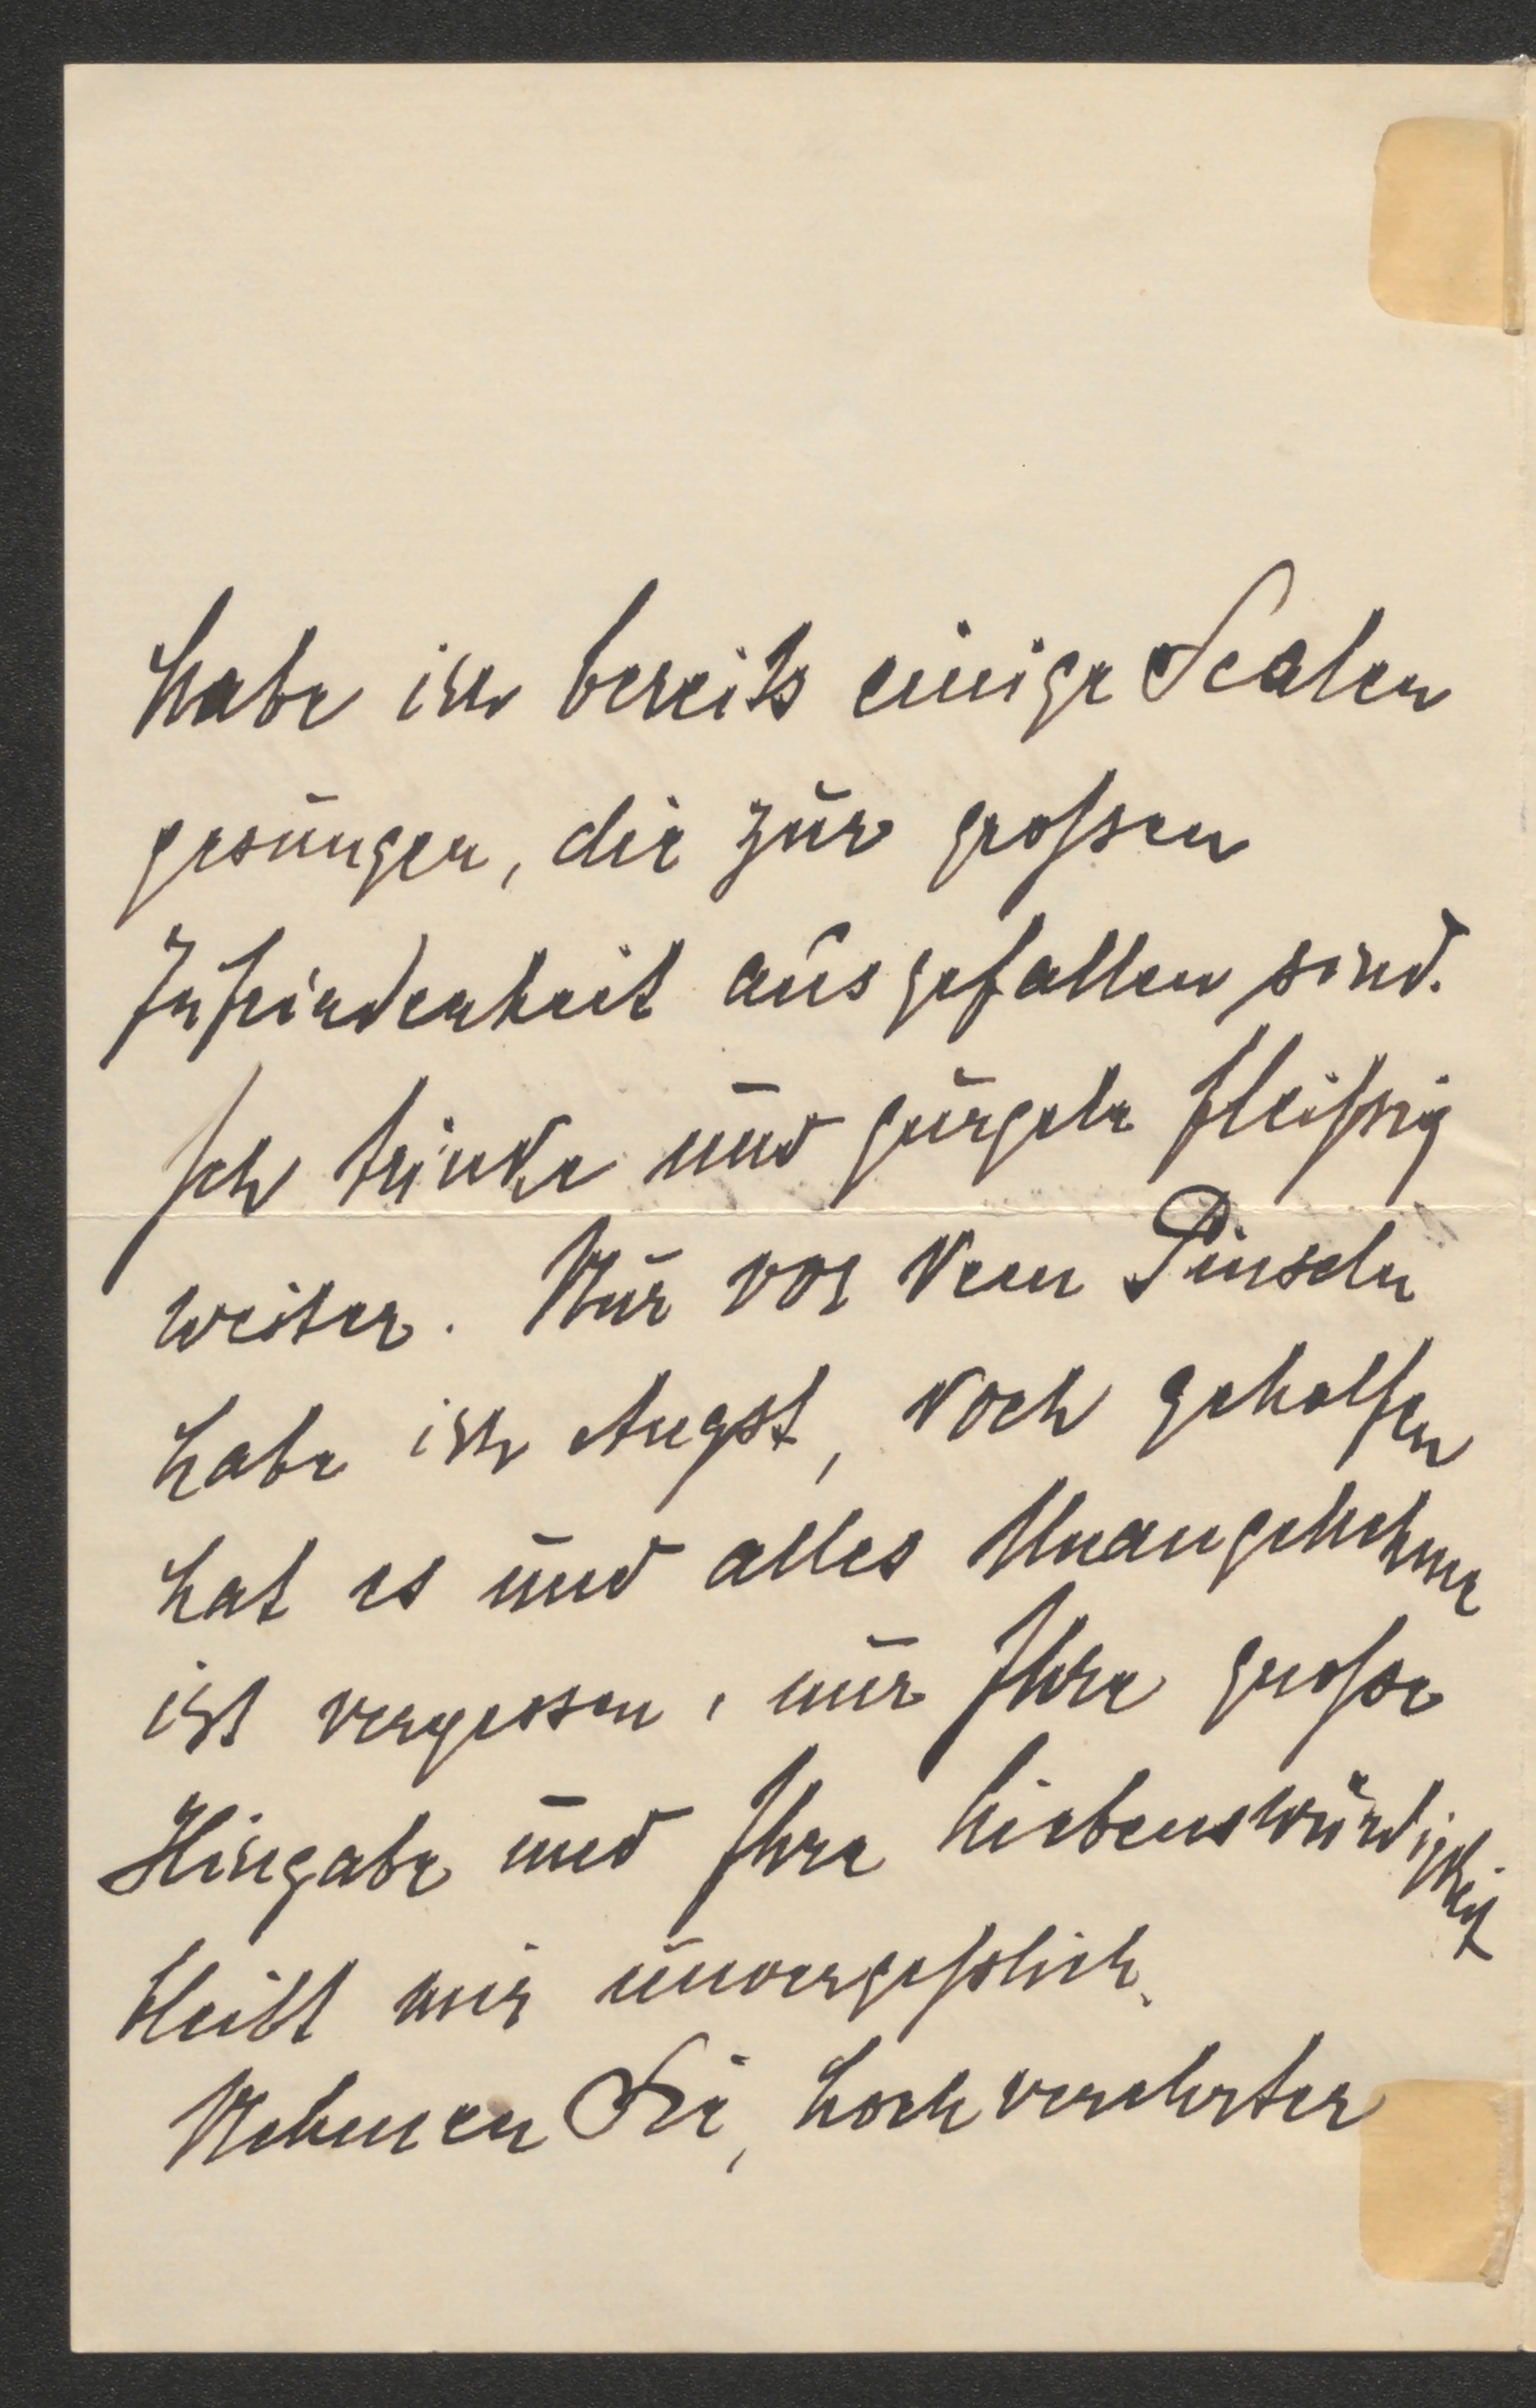 habe ich bereits einige Scalen
gesungen, die zur grossen
Zufriedenheit ausgefallen sind.
Ich trinke und gurgele fleissig
weiter. Nur vor dem Pinseln
habe ich Angst, doch geholfen
hat es und alles Unangenehme
ist vergessen, nur Ihre grosse
Hingabe und Ihre Liebenswürdigkeit
bleibt mir unvergesslich.
Nehmen Sie, hochverehrter